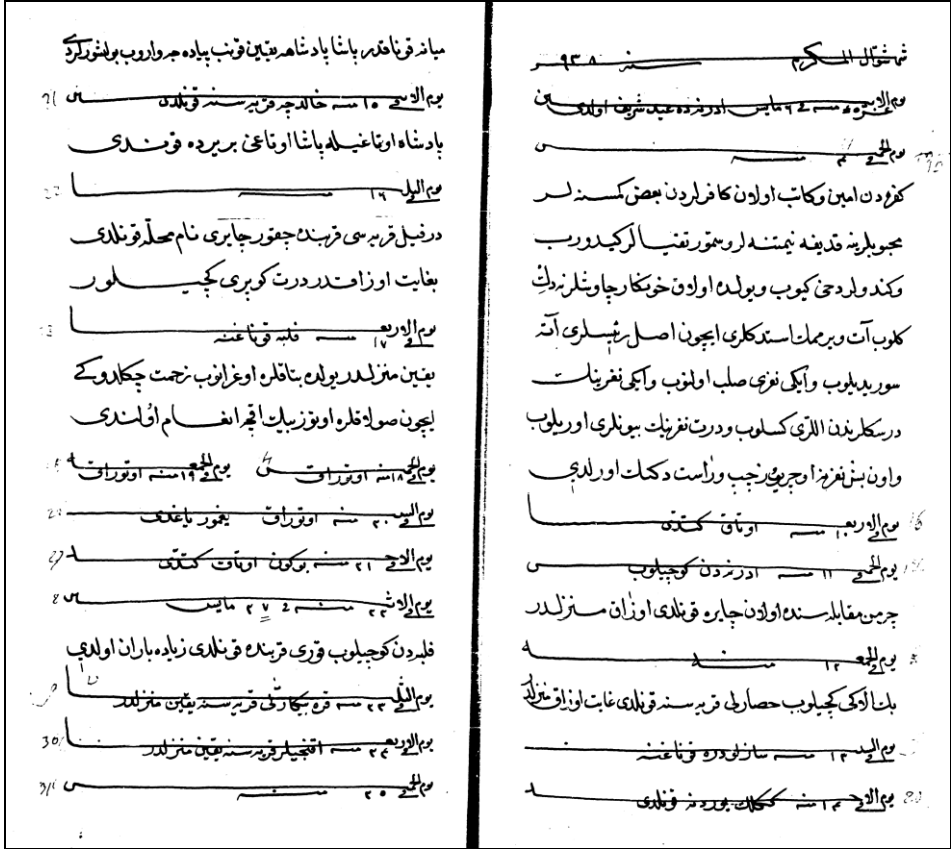 شهر شوال المكرم سنه ٩٣٨
يوم الاثنين غره منه فى ٦ مايس ادرنه ده عيد شريف اولدى
يوم الخميس ٤ منه
كفره دن امين و كاتب اولان كافرلردن بعض كمسنه لر
محبوبلرينه قديفه نيمتنه لر و سمور تقيا لر كيدورب
وكندولر دخى كيوب و يولده اولاق خونكار چاوشلرنه
كلوب آت ويرممك استدكلرى ايچون اصل رئيسلرى آته
سوريديلوب و ايكى نفرى صلب اولنوب و ايكى نفرينك
درسكلرندن اللرى كسلوب و درت نفرينك بيونلرى اوريلوب
و اون بش نفرنه اوچر يوز چپ و راست دكنك اورلدى
يوم الاربعا ١٠ منه اوتاق كتدى
يوم الخميس ١١ منه ادرنه دن كوچيلوب
چرمن مقابله سنده اولان چايره قونلدى اوزان منزلدر
يوم الجمعه ١٢ منه
كچيلوب حصارلى قريه سنه قونلدى غايت اوزاق منزلدر
يوم السبت ١٣ منه سازلو دره قوناغنه
يوم الاحد ١٤ منه ككلك بوردنه قونلدى
ميانه قوناقدر پاشا پادشاهه يقين قونب پياده جه واروب بولشورلردى
يوم الاثنين ١٥ منه خالدجه قريه سنه قونلدى
پادشاه اوتاغيله پاشا اوتاغى بر يرده قوندى
يوم الثلثا ١٦ منه
درفيل قريه سى قربنده چقور چايرى نام محله قونلدى
بغايت اوزاقدر درت كوپرى كچيلور
يوم الاربعا ١٧ منه فلبه قوناغنه
يقين منزلدر يولده بتاقلره اوغرانوب زحمت چكلدوكى
ايچون صولاقلره اوتوز بيك اقچه انعام اولندى
يوم الخميس ١٨ منه اوتوراق يوم الجمعه ١٩ منه اوتوراق
يوم السبت ٢٠ منه اوتوراق يغمور ياغدى
يوم الاحد ٢١ منه بوكون اوتاق كتدى
يوم الاثنين ٢٢ منه فى ٢٧ مايس
فلبه دن كوچيلوب قوزى قربنده قونلدى زياده باران اولدى
يوم الثلثا ٢٣ منه قره بيكارلى قريه سنه يقين منزلدر
يوم الاربعا ٢٤ منه اقنجيلر قريه سنه يقين منزلدر
يوم الخميس ٢٥ منه